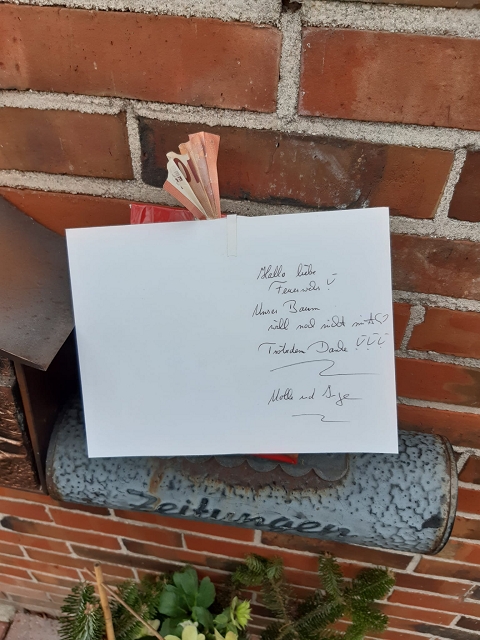 Hallo liebe
Feuerwehr!
Unser Baum
will noch nicht mit
Trotzdem Danke !!!
und
Zeitungen